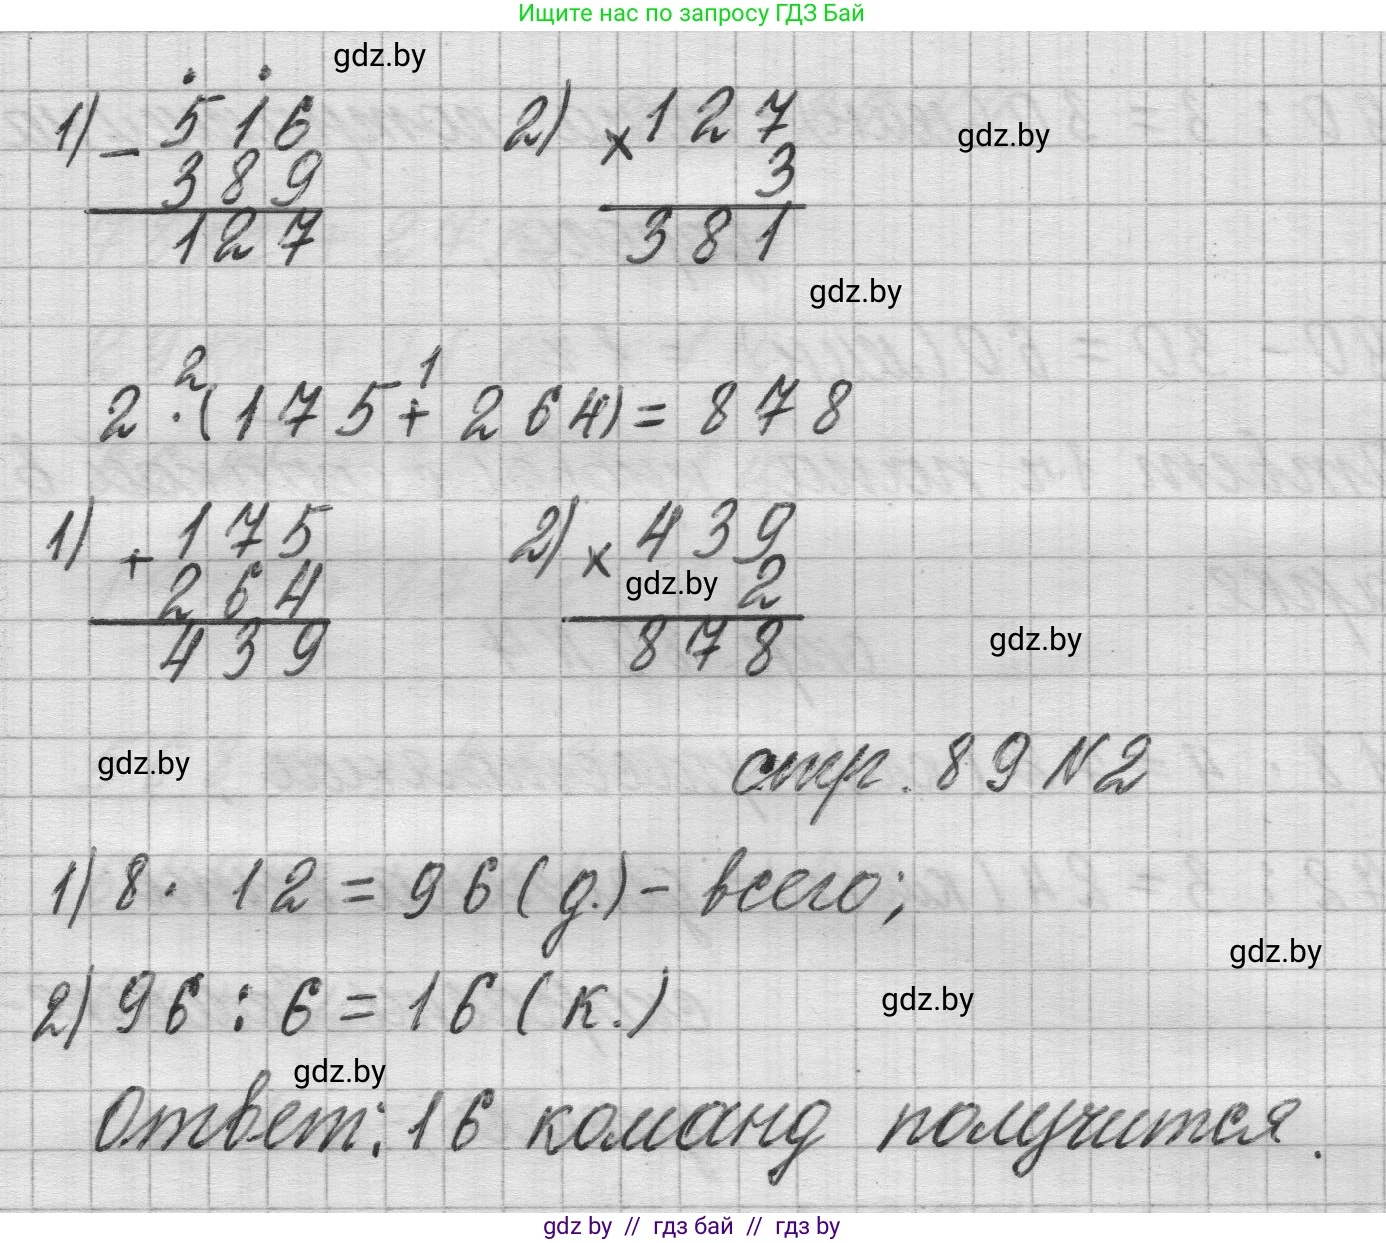 Ищите нас по запросу ГДЗ Бай
gdz.by
1) - 516 2) × 127
gdz.by
389 3
127 381
gdz.by
2 1
2 · (175 + 264) = 878
1) + 175 2) × 439
264 gdz.by 2
439 878
gdz.by
gdz.by стр. 89 N2
1) 8 · 12 = 96 (д.) - всего;
gdz.by
2) 96 : 6 = 16 (к.)
gdz.by
gdz.by
Ответ: 16 команд получится.
gdz by // гдз бай // гдз by